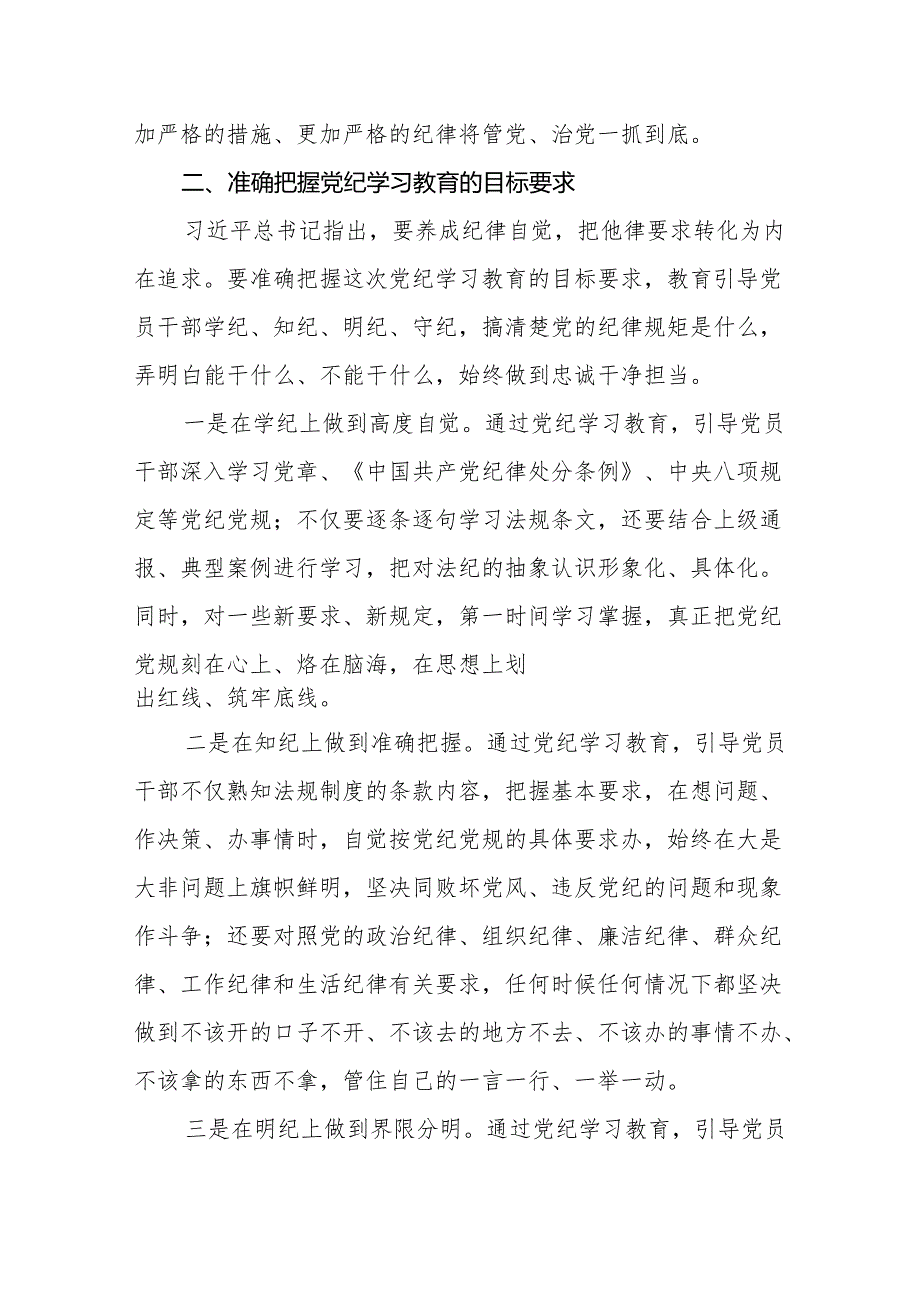 加严格的措施、更加严格的纪律将管党、治党一抓到底。
二、准确把握党纪学习教育的目标要求
习近平总书记指出，要养成纪律自觉，把他律要求转化为内
在追求。要准确把握这次党纪学习教育的目标要求，教育引导党
员干部学纪、知纪、明纪、守纪，搞清楚党的纪律规矩是什么，
弄明白能干什么、不能干什么，始终做到忠诚干净担当。
一是在学纪上做到高度自觉。通过党纪学习教育，引导党员
干部深入学习党章、《中国共产党纪律处分条例》、中央八项规
定等党纪党规；不仅要逐条逐句学习法规条文，还要结合上级通
报、典型案例进行学习，把对法纪的抽象认识形象化、具体化。
同时，对一些新要求、新规定，第一时间学习掌握，真正把党纪
党规刻在心上、烙在脑海，在思想上划
出红线、筑牢底线。
二是在知纪上做到准确把握。通过党纪学习教育，引导党员
干部不仅熟知法规制度的条款内容，把握基本要求，在想问题、
作决策、办事情时，自觉按党纪党规的具体要求办，始终在大是
大非问题上旗帜鲜明，坚决同败坏党风、违反党纪的问题和现象
作斗争；还要对照党的政治纪律、组织纪律、廉洁纪律、群众纪
律、工作纪律和生活纪律有关要求，任何时候任何情况下都坚决
做到不该开的口子不开、不该去的地方不去、不该办的事情不办、
不该拿的东西不拿，管住自己的一言一行、一举一动。
三是在明纪上做到界限分明。通过党纪学习教育，引导党员